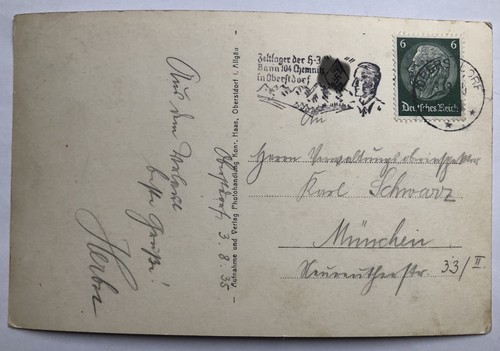 Aus dem Urlaub
beste Grüße!
Herbert
Oberstdorf 3. 8. 35
Aufnahme und Verlag Photohandlung Konr. Haas, Oberstdorf i. Allgäu
Zeltlager der H-J
Bann 104 Chemnitz
in Oberstdorf
6 6
Deutsches Reich
OBERSTDORF
An
Herrn Verwaltungsoberinspektor
Karl Schwarz
München
Neureutherstr. 33/II